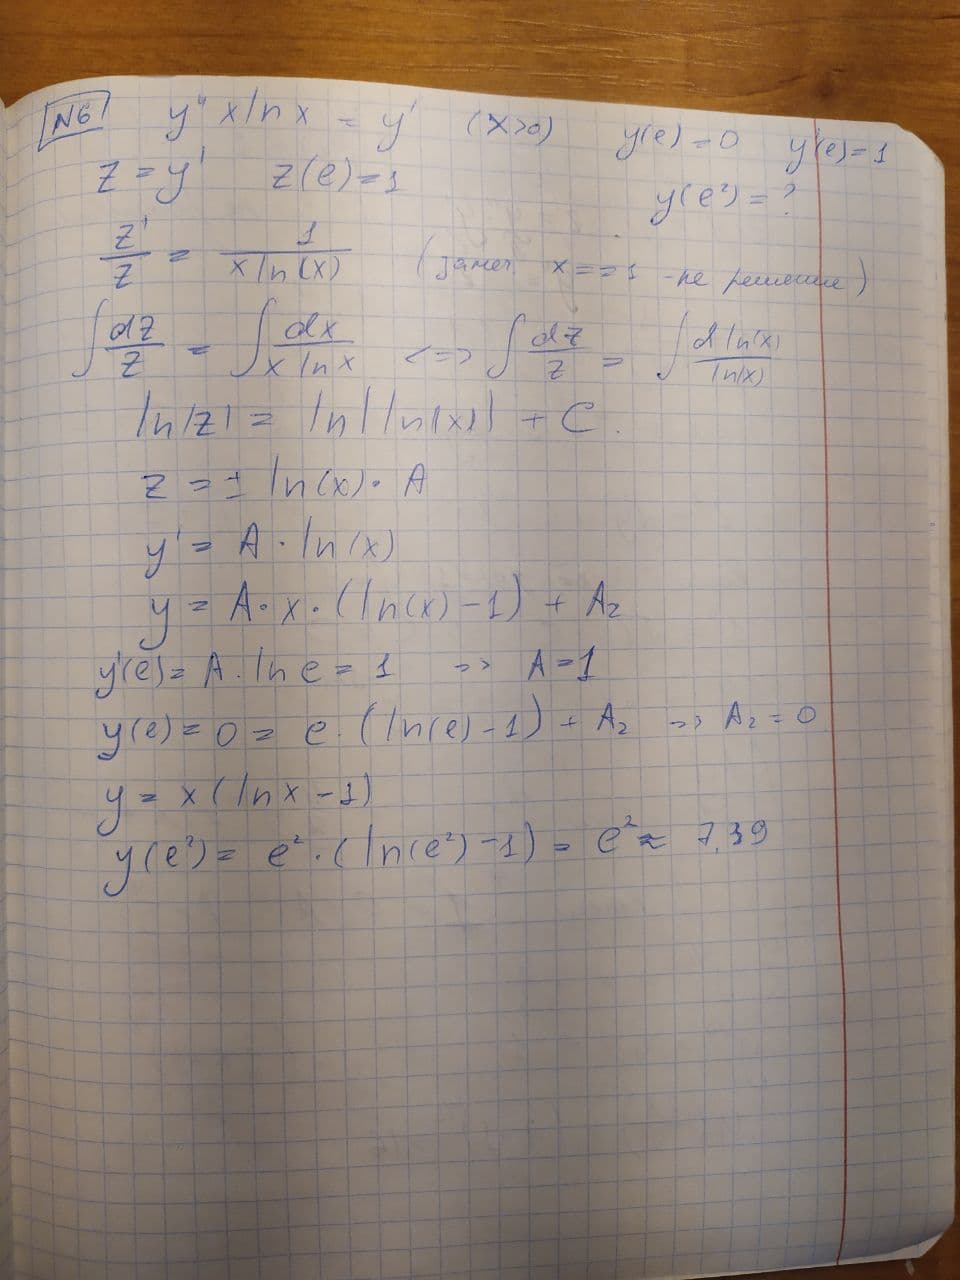 N6 y'' x ln x = y' (x>0) y(e) = 0 y'(e) = 1
z = y' z(e) = 1 y(e²) = ?
z'/z = 1/(x ln(x)) (замеч x == 1 - не решение)
∫ dz/z = ∫ dx/(x ln x) <=> ∫ dz/z = ∫ d ln(x)/ln(x)
ln|z| = ln|ln(x)| + C.
z = ± ln(x) · A
y' = A · ln(x)
y = A · x · (ln(x) - 1) + A₂
y'(e) = A · ln e = 1 => A = 1
y(e) = 0 = e · (ln(e) - 1) + A₂ => A₂ = 0
y = x (ln x - 1)
y(e²) = e² · (ln(e²) - 1) = e² ≈ 7,39